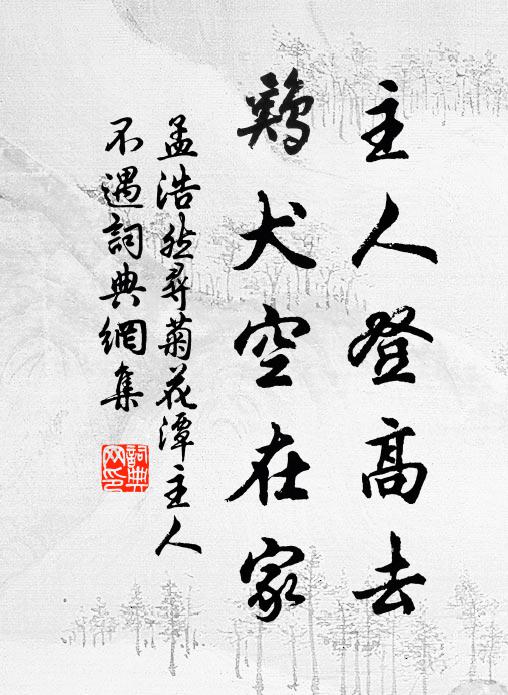 主人登高去
鷄犬空在家
孟浩然尋菊花潭主人
不遇詞典網集
詞典网印